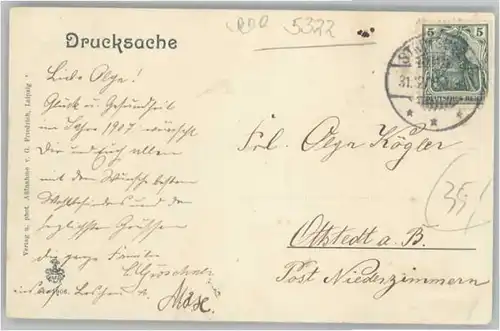 5322
Drucksache
5 5
31.12
DEUTSCHES REICH
Liebe Olga!
Glück u. Gesundheit
im Jahre 1907 wünscht
Dir und Euch allen
mit dem Wunsche besten
Wohlbefindens und den
herzlichsten Grüssen
die ganze Familie
Frl. Olga Kögler
Ottstedt a. B.
Post Niederzimmern
35,
Verlag u. phot. Aufnahme v. G. Friedrich, Leipzig